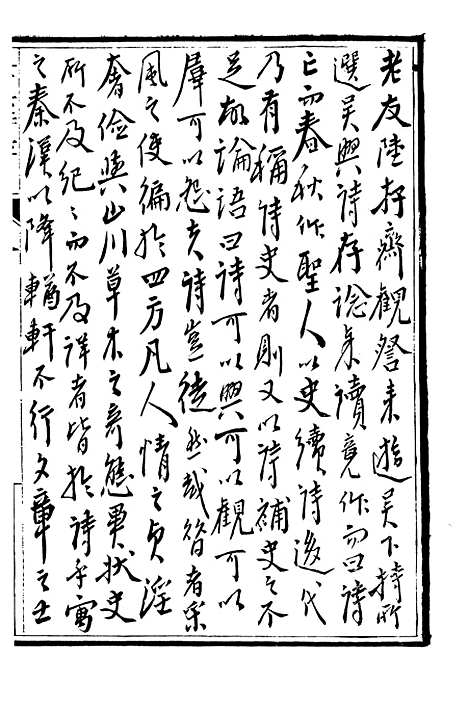 老友陸存齋觀詧来遊吳下持所
選吳興詩存諗余讀竟作而曰詩
亡而春秋作聖人以史續詩後代
乃有稱詩史者則又以詩補史之不
足故論語曰詩可以興可以觀可以
羣可以怨夫詩豈徒然哉昔者采
風之使徧於四方凡人情之貞淫
奢儉與山川草木之奇態異狀史
所不及紀〻而不及詳者皆於詩乎寓
之秦漢以降輶軒不行文章之士